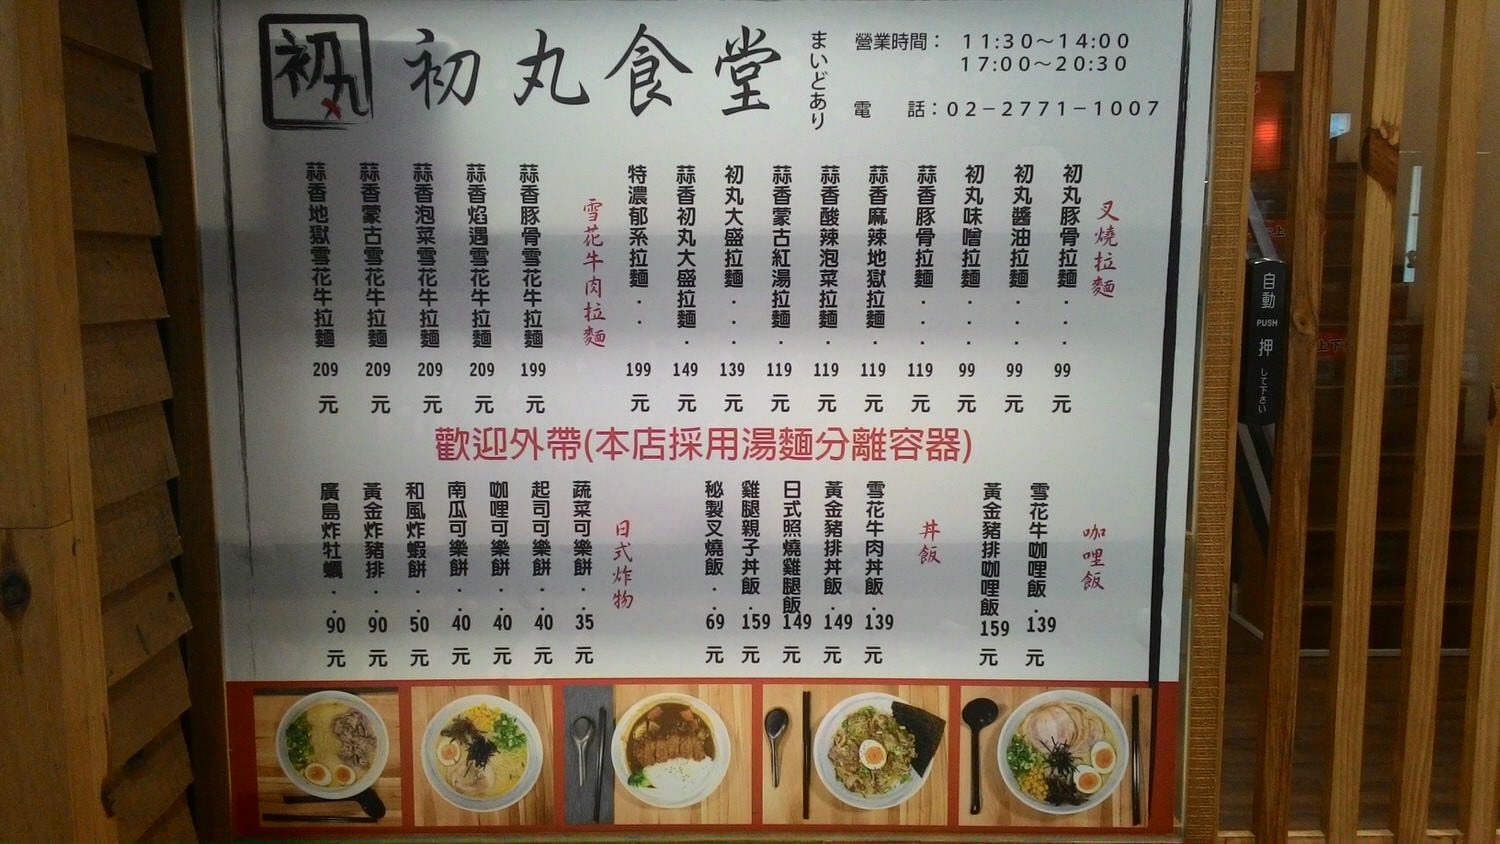 初丸
初丸食堂
まいどあり
營業時間： 11:30～14:00
17:00～20:30
電 話：02－2771－1007
叉燒拉麵
初丸豚骨拉麵．．99元
初丸醬油拉麵．．99元
初丸味噌拉麵．．99元
蒜香豚骨拉麵．．119元
蒜香麻辣地獄拉麵．119元
蒜香酸辣泡菜拉麵．119元
蒜香蒙古紅湯拉麵．119元
初丸大盛拉麵．．139元
蒜香初丸大盛拉麵．149元
特濃郁系拉麵．．199元
雪花牛肉拉麵
蒜香豚骨雪花牛拉麵 199元
蒜香焰遇雪花牛拉麵 209元
蒜香泡菜雪花牛拉麵 209元
蒜香蒙古雪花牛拉麵 209元
蒜香地獄雪花牛拉麵 209元
歡迎外帶(本店採用湯麵分離容器)
咖哩飯
雪花牛咖哩飯．139元
黃金豬排咖哩飯 159元
丼飯
雪花牛肉丼飯．139元
黃金豬排丼飯．149元
日式照燒雞腿飯 149元
雞腿親子丼飯．159元
秘製叉燒飯．．69元
日式炸物
蔬菜可樂餅．．35元
起司可樂餅．．40元
咖哩可樂餅．．40元
南瓜可樂餅．．40元
和風炸蝦餅．．50元
黃金炸豬排．．90元
廣島炸牡蠣．．90元
自動
PUSH
押
して下さい